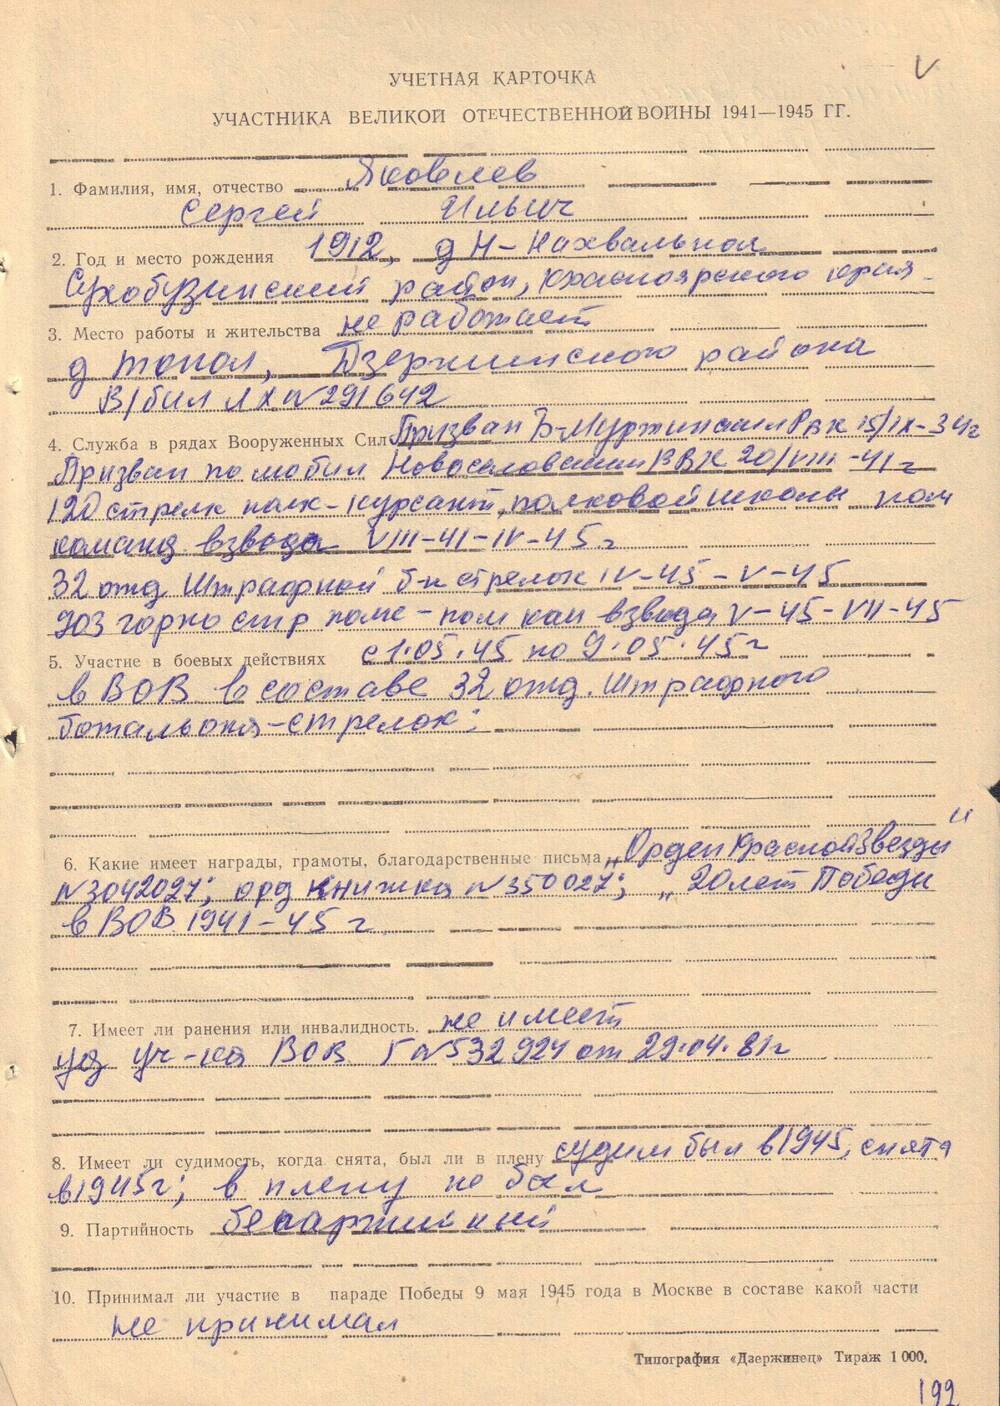 V
УЧЕТНАЯ КАРТОЧКА
УЧАСТНИКА ВЕЛИКОЙ ОТЕЧЕСТВЕННОЙ ВОЙНЫ 1941—1945 ГГ.
1. Фамилия, имя, отчество Яковлев
Сергей Ильич
2. Год и место рождения 1912, д Н-Нахвальная
Сухобузинский район, Красноярского края
3. Место работы и жительства не работает
д Топол, Дзержинского района
В/бил ЛХ №291642
4. Служба в рядах Вооруженных Сил Призван Б-Муртинским РВК 15/IX-34г
Призван по мобил Новоселовским РВК 20/VIII-41г
120 стрелк полк-курсант, полковой школы пом
команд взвода VIII-41-IV-45г
32 отд Штрафной б-н стрелок IV-45-V-45
903 горно стр полк-пом ком взвода V-45-VII-45
5. Участие в боевых действиях с 1.05.45 по 9.05.45г
в ВОВ в составе 32 отд. Штрафного
батальона-стрелок;
6. Какие имеет награды, грамоты, благодарственные письма „Орден Красной Звезды"
№3042027; орд книжка №350027; „20 лет Победы
в ВОВ 1941-45г
7. Имеет ли ранения или инвалидность. не имеет
уд уч-ка ВОВ Г №532924 от 29.04.81г
8. Имеет ли судимость, когда снята, был ли в плену судим был в 1945, снята
в 1945г; в плену не был
9. Партийность беспартийный
10. Принимал ли участие в параде Победы 9 мая 1945 года в Москве в составе какой части
не принимал
Типография «Дзержинец» Тираж 1 000.
192